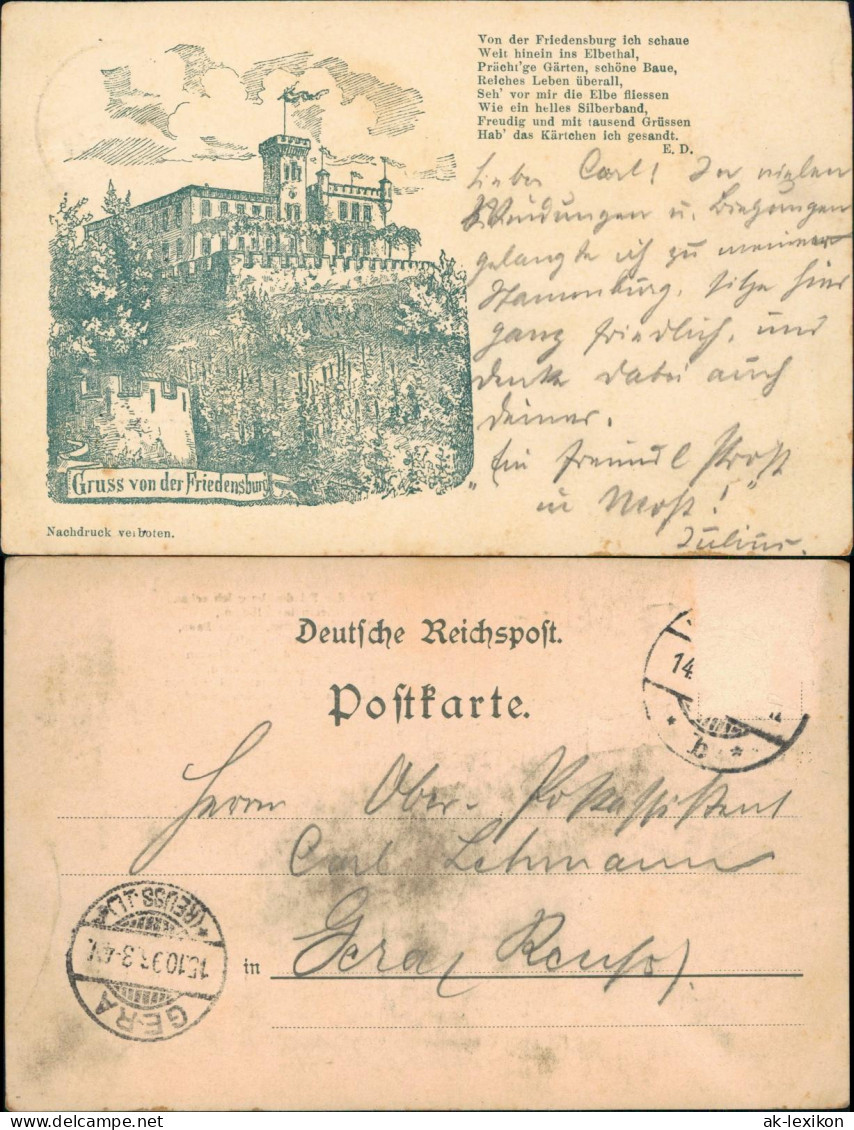 Von der Friedensburg ich schaue
Weit hinein ins Elbethal,
Prächt'ge Gärten, schöne Baue,
Reiches Leben überall,
Seh' vor mir die Elbe fliessen
Wie ein helles Silberband,
Freudig und mit tausend Grüssen
Hab' das Kärtchen ich gesandt.
E. D.
Lieber Carl! Der vielen
Windungen u. Biegungen
gelangte ich zu meiner
Stammburg, sitze hier
ganz friedlich, und
denke dabei auch
deiner.
"Ein freundl Prost
in Most!"
Julius.
Gruss von der Friedensburg
Nachdruck verboten.
Deutsche Reichspost.
Postkarte.
14.
b
Herrn Ober-Postassistent
Carl Lehmann
in Gera (Reuss).
GERA
15.10.98.3-4N.
*(REUSS J.L.)*
ak-lexikon